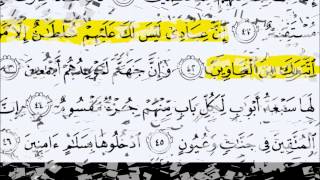 مُسْتَقِيمٌ ٤١ إِنَّ عِبَادِى لَيْسَ لَكَ عَلَيْهِمْ سُلْطَٰنٌ إِلَّا مَنِ
ٱتَّبَعَكَ مِنَ ٱلْغَاوِينَ ٤٢ وَإِنَّ جَهَنَّمَ لَمَوْعِدُهُمْ أَجْمَعِينَ ٤٣
لَهَا سَبْعَةُ أَبْوَٰبٍ لِّكُلِّ بَابٍ مِّنْهُمْ جُزْءٌ مَّقْسُومٌ ٤٤ إِنَّ
ٱلْمُتَّقِينَ فِى جَنَّٰتٍ وَعُيُونٍ ٤٥ ٱدْخُلُوهَا بِسَلَٰمٍ ءَامِنِينَ ٤٦